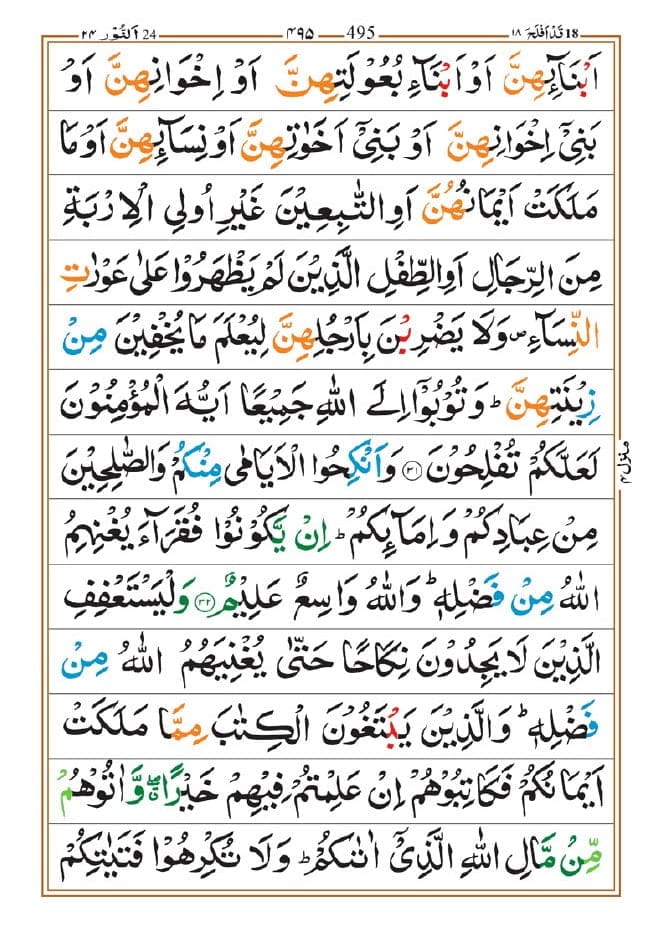 18 قَدْ اَفْلَحَ ١٨ 495 ۴۹۵ 24 اَلنُّوْر ٢٤
اَبْنَآئِهِنَّ اَوْ اَبْنَآءِ بُعُوْلَتِهِنَّ اَوْ اِخْوَانِهِنَّ اَوْ
بَنِیْۤ اِخْوَانِهِنَّ اَوْ بَنِیْۤ اَخَوٰتِهِنَّ اَوْ نِسَآئِهِنَّ اَوْ مَا
مَلَكَتْ اَیْمَانُهُنَّ اَوِ التّٰبِعِیْنَ غَیْرِ اُولِی الْاِرْبَةِ
مِنَ الرِّجَالِ اَوِ الطِّفْلِ الَّذِیْنَ لَمْ یَظْهَرُوْا عَلٰى عَوْرٰتِ
النِّسَآءِ۪ وَلَا یَضْرِبْنَ بِاَرْجُلِهِنَّ لِیُعْلَمَ مَا یُخْفِیْنَ مِنْ
زِیْنَتِهِنَّ ؕ وَتُوْبُوْۤا اِلَى اللّٰهِ جَمِیْعًا اَیُّهَ الْمُؤْمِنُوْنَ
لَعَلَّكُمْ تُفْلِحُوْنَ ﴿۳۱﴾ وَاَنْكِحُوا الْاَیَامٰى مِنْكُمْ وَالصّٰلِحِیْنَ
مِنْ عِبَادِكُمْ وَاِمَآئِكُمْ ؕ اِنْ یَّكُوْنُوْا فُقَرَآءَ یُغْنِهِمُ
اللّٰهُ مِنْ فَضْلِهٖ ؕ وَاللّٰهُ وَاسِعٌ عَلِیْمٌ ﴿۳۲﴾ وَلْیَسْتَعْفِفِ
الَّذِیْنَ لَا یَجِدُوْنَ نِكَاحًا حَتّٰى یُغْنِیَهُمُ اللّٰهُ مِنْ
فَضْلِهٖ ؕ وَالَّذِیْنَ یَبْتَغُوْنَ الْكِتٰبَ مِمَّا مَلَكَتْ
اَیْمَانُكُمْ فَكَاتِبُوْهُمْ اِنْ عَلِمْتُمْ فِیْهِمْ خَیْرًا ۖۗ وَّاٰتُوْهُمْ
مِّنْ مَّالِ اللّٰهِ الَّذِیْۤ اٰتٰىكُمْ ؕ وَلَا تُكْرِهُوْا فَتَیٰتِكُمْ
منزل ۴